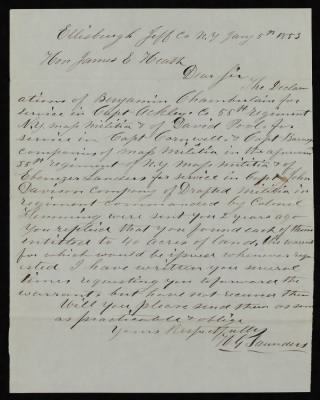 Ellisburgh Jeff Co N.Y Jany 5th 1853
Hon James E Heath
Dear Sir
The Declar
ations of Benjamin Chamberlain for
service in Capt Ackleys Co 55th Regiment
N.Y. mass militia & of David Pool for
service in Capt & Capt
companies of mass militia in the aforesaid
55th regiment of N.Y mass militia & of
Ebenezer Landers for service in Capt John
Davison company of Drafted militia in
regiment commanded by Colonel
Flemming were sent you 2 years ago
You replied that you found each of them
entitled to 40 acres of land, the warrants
for which would be issued whenever requ
ested I have written you several
times requesting you to forward the
warrants but have not received them
Will you please send them as soon
as practicable & oblige
Yours Respectfully
Saunders